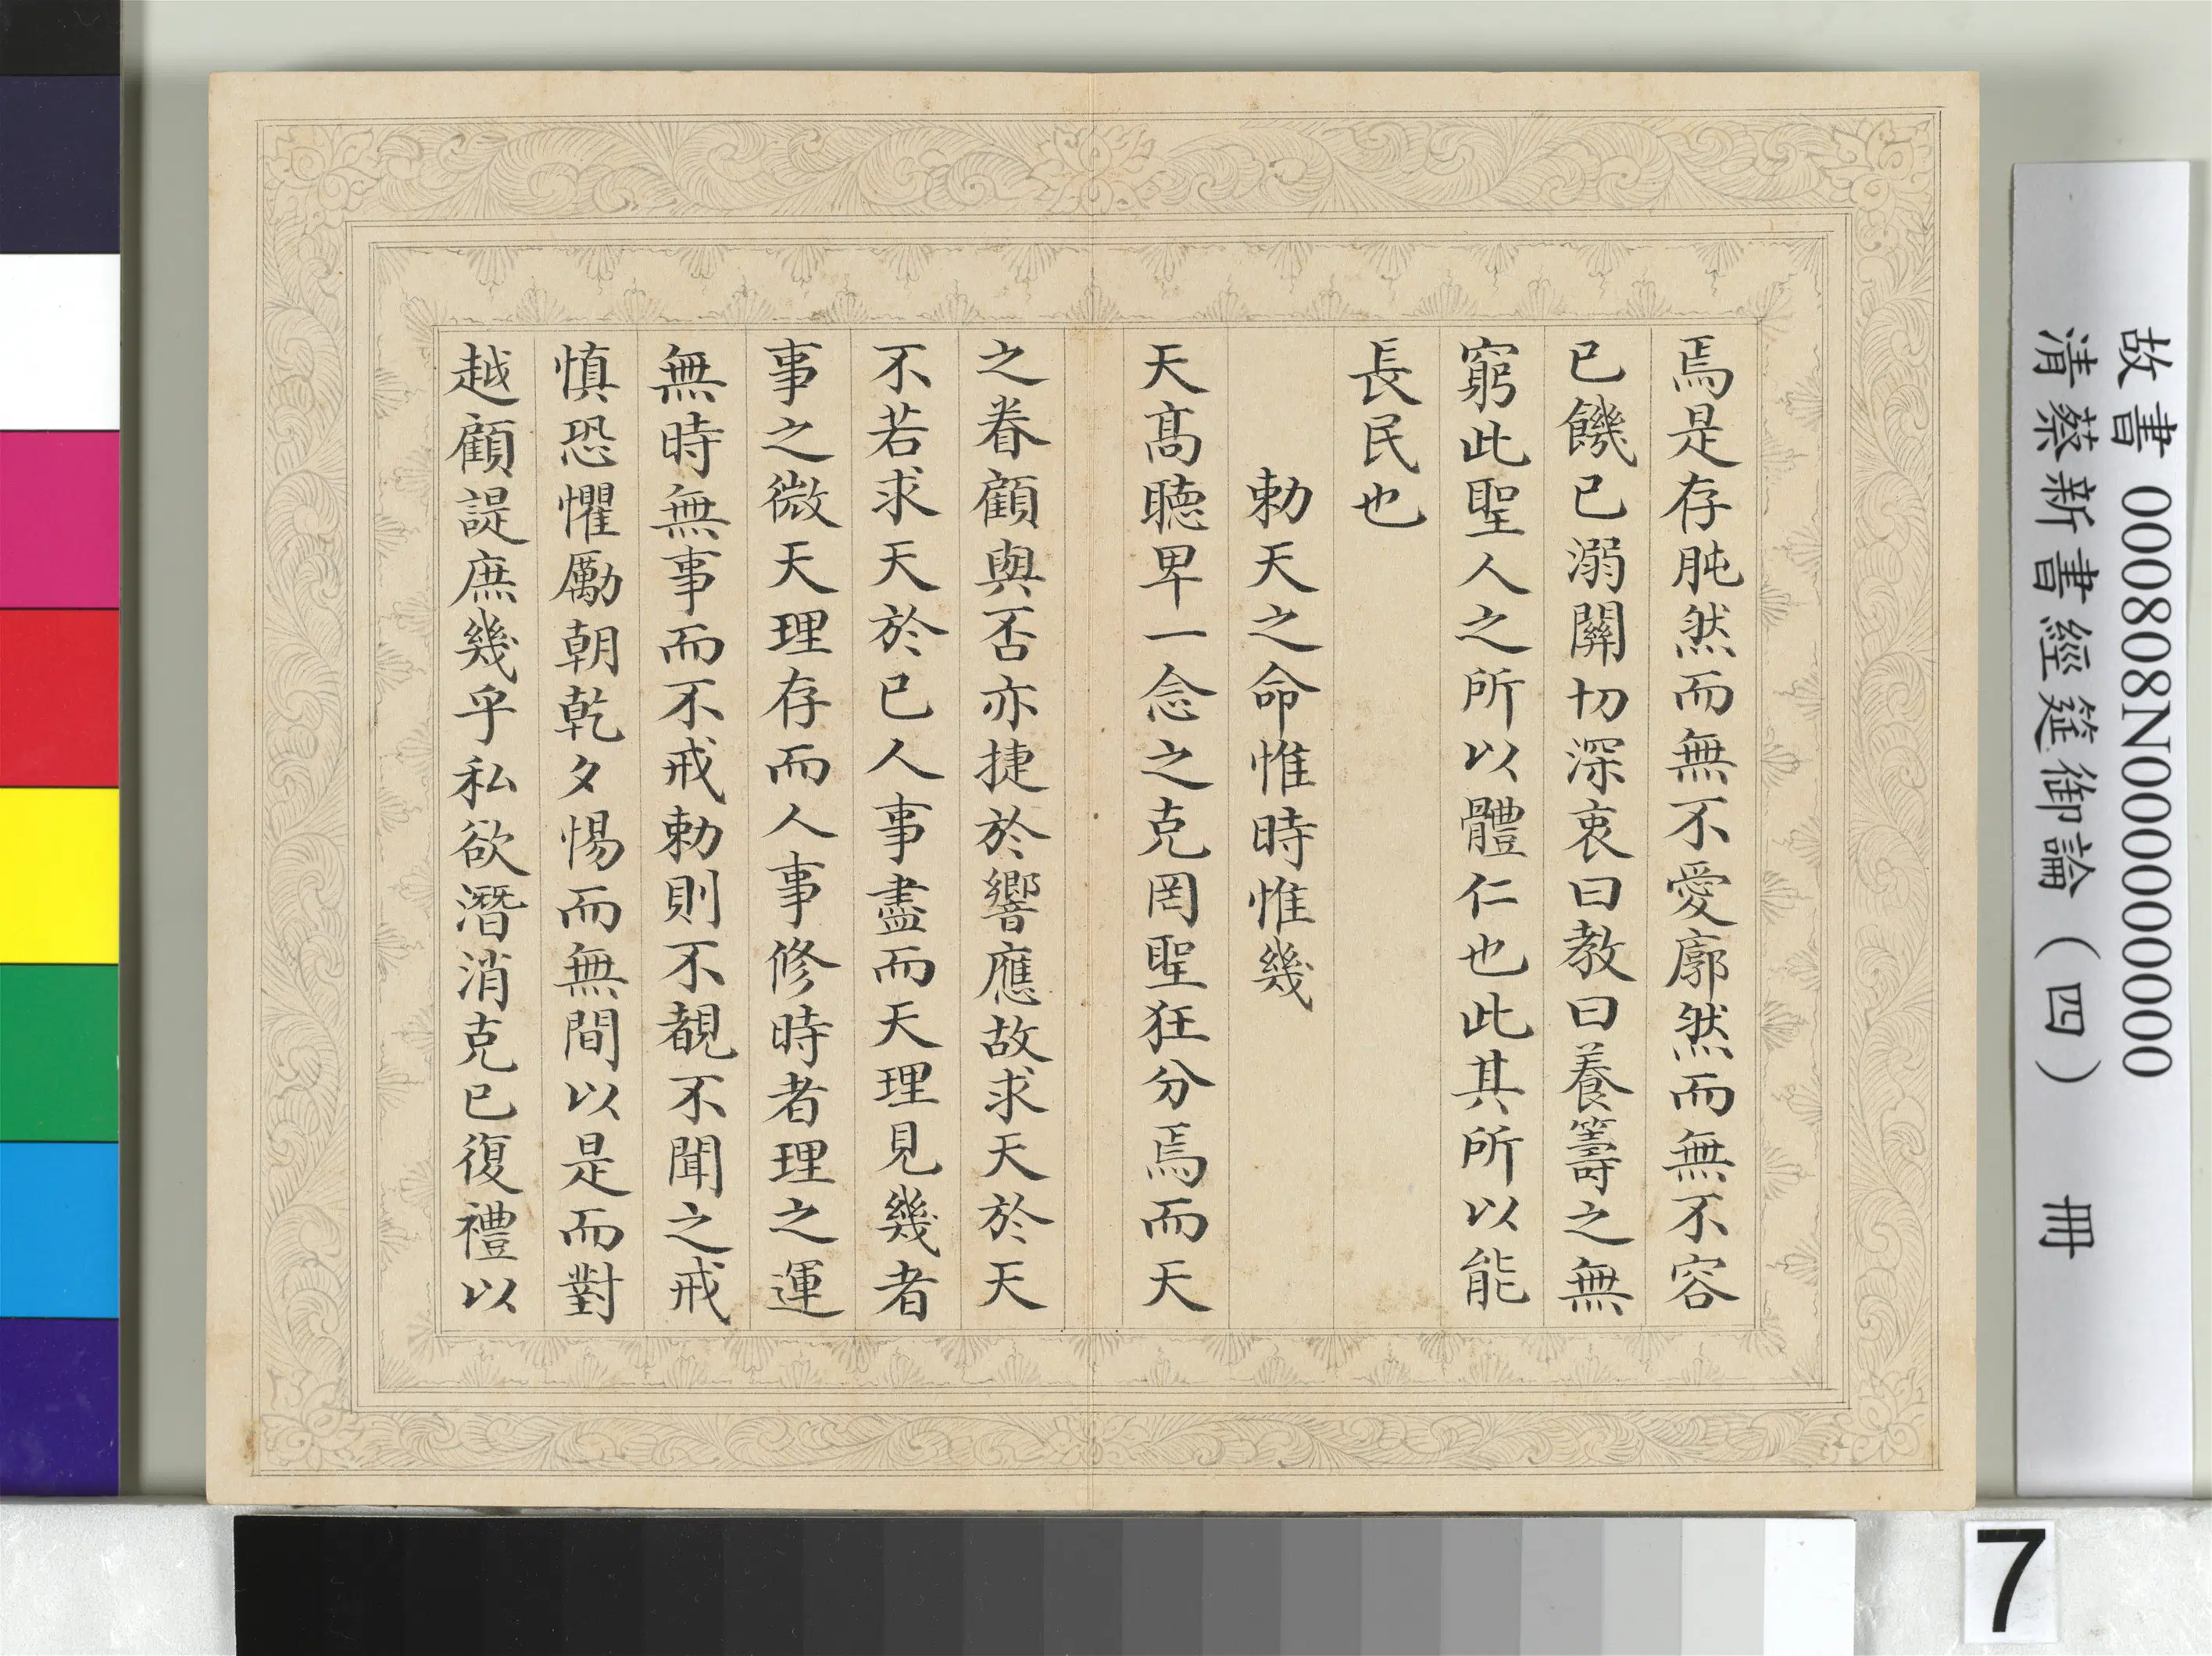 焉是存肫然而無不愛廓然而無不容
已饑已溺關切深衷曰教曰養籌之無
窮此聖人之所以體仁也此其所以能
長民也
勅天之命惟時惟幾
天高聽卑一念之克罔聖狂分焉而天
之眷顧與否亦捷於響應故求天於天
不若求天於已人事盡而天理見幾者
事之微天理存而人事修時者理之運
無時無事而不戒勅則不覩不聞之戒
慎恐懼勵朝乾夕惕而無間以是而對
越顧諟庶幾乎私欲潛消克已復禮以
故書 000808N000000000
清蔡新書經筵御論（四） 冊
7